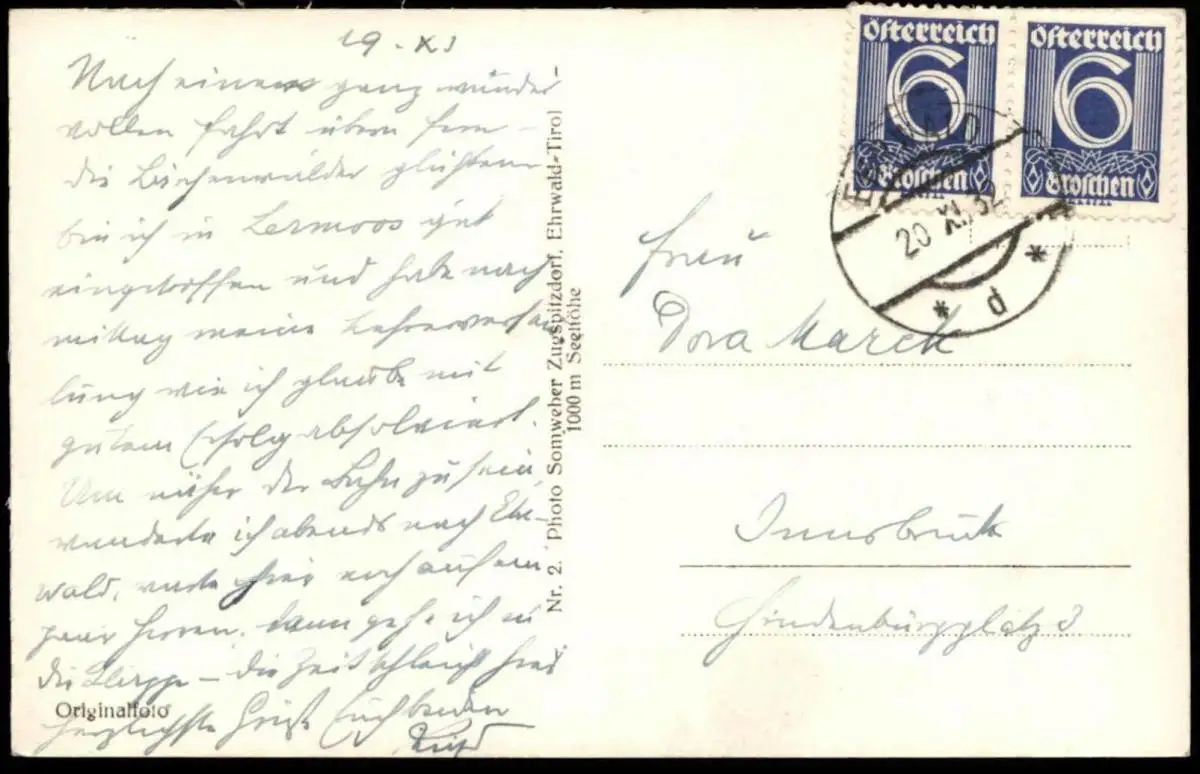 19. XI
Nach einer ganz wunder
vollen Fahrt übern Fern –
die Lärchenwälder glühten
bin ich in Lermoos gut
eingetroffen und habe nach
mittag meine Lehrerversam
lung wie ich glaube mit
gutem Erfolg absolviert.
Um näher der Bahn zu sein,
wanderte ich abends nach Ehr-
wald, warte hier noch auf ein
paar Herren, dann gehe ich in
die Klappe – die Zeit schleicht hier
Herzlichste Grüße Euch beiden
Originalfoto
Nr. 2. Photo Somweber Zugspitzdorf, Ehrwald-Tirol
1000 m Seehöhe
Österreich
6
Groschen
Österreich
6
Groschen
EHRWALD
20 XI 32
* d *
Frau
Dora Marek
Innsbruck
Hindenburgplatz 3